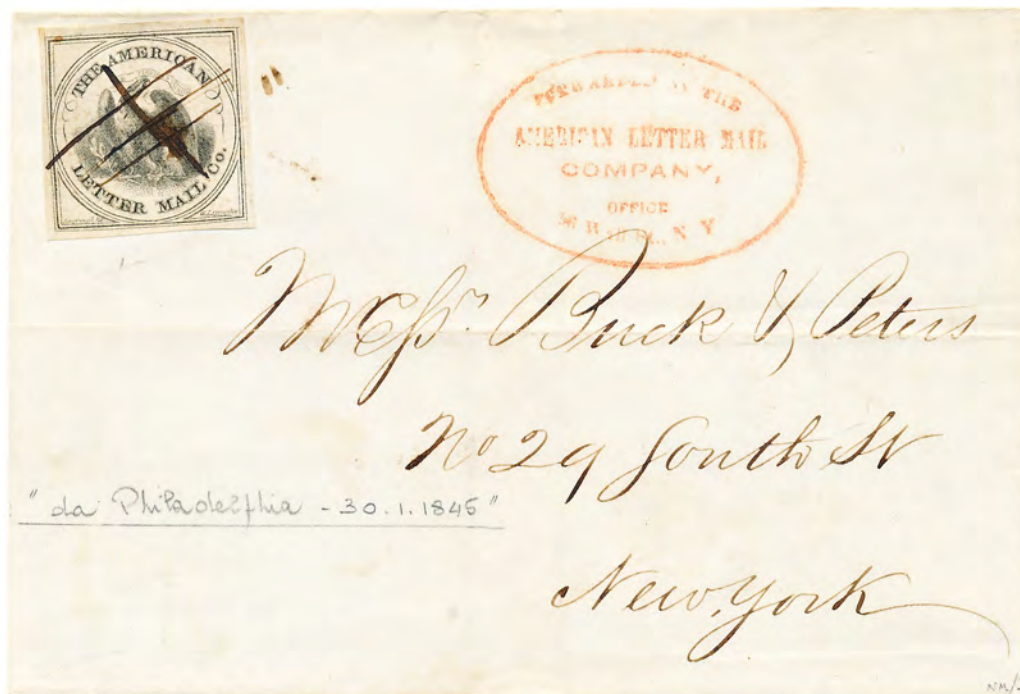 THE AMERICAN
LETTER MAIL CO.
FORWARDED BY THE
AMERICAN LETTER MAIL
COMPANY,
OFFICE
St., N Y
Messrs. Buck & Peters
No 29 South St
New York
" da Philadelphia - 30.1.1845 "